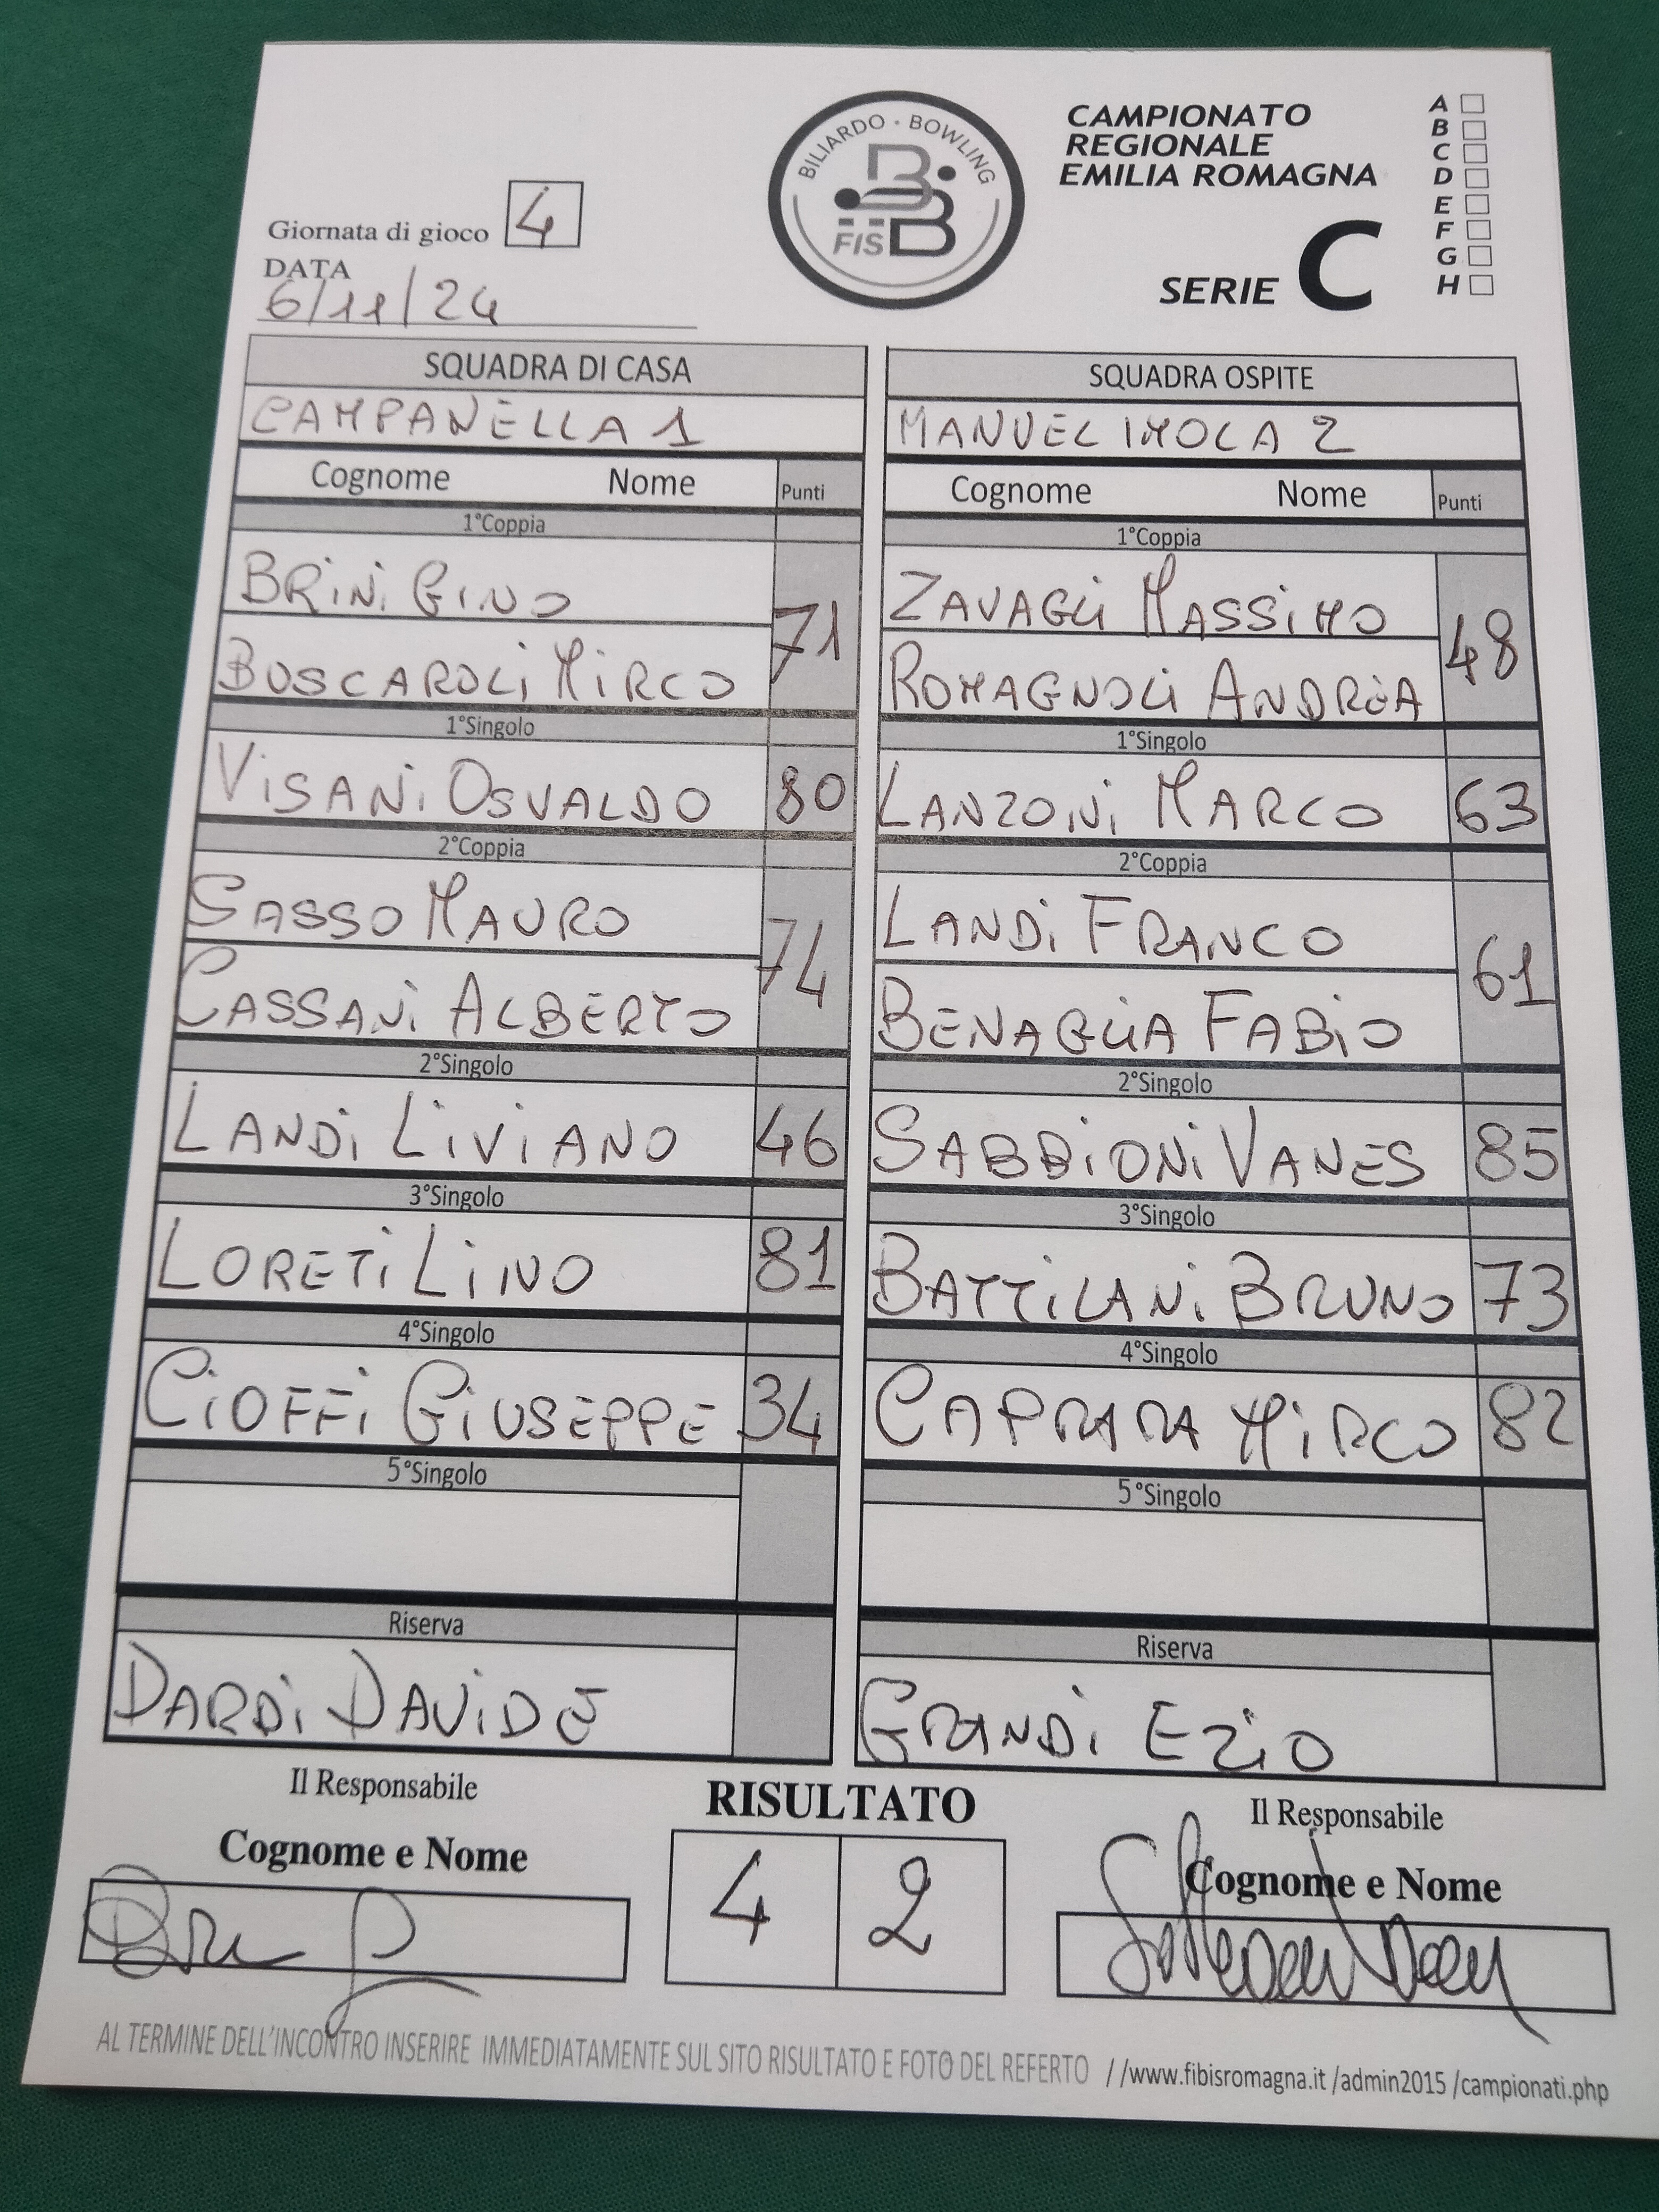 BILIARDO - BOWLING
FISBB
CAMPIONATO
REGIONALE
EMILIA ROMAGNA
SERIE C
A
B
C
D
E
F
G
H
Giornata di gioco 4
DATA
6/11/24
SQUADRA DI CASA
CAMPANELLA 1
Cognome Nome Punti
1°Coppia
BRINI GINO
71
BOSCAROLI MIRCO
1°Singolo
VISANI OSVALDO 80
2°Coppia
SASSO MAURO
74
CASSANI ALBERTO
2°Singolo
LANDI LIVIANO 46
3°Singolo
LORETI LINO 81
4°Singolo
CIOFFI GIUSEPPE 34
5°Singolo
Riserva
DARDI DAVIDE
SQUADRA OSPITE
MANUEL IMOLA 2
Cognome Nome Punti
1°Coppia
ZAVAGLI MASSIMO
48
ROMAGNOLI ANDREA
1°Singolo
LANZONI MARCO 63
2°Coppia
LANDI FRANCO
61
BENAGLIA FABIO
2°Singolo
SABBIONI VANES 85
3°Singolo
BATTILANI BRUNO 73
4°Singolo
CAPRARA MIRCO 82
5°Singolo
Riserva
GRANDI EZIO
Il Responsabile
Cognome e Nome
RISULTATO
4 2
Il Responsabile
Cognome e Nome
AL TERMINE DELL'INCONTRO INSERIRE IMMEDIATAMENTE SUL SITO RISULTATO E FOTO DEL REFERTO //www.fibisromagna.it /admin2015 /campionati.php